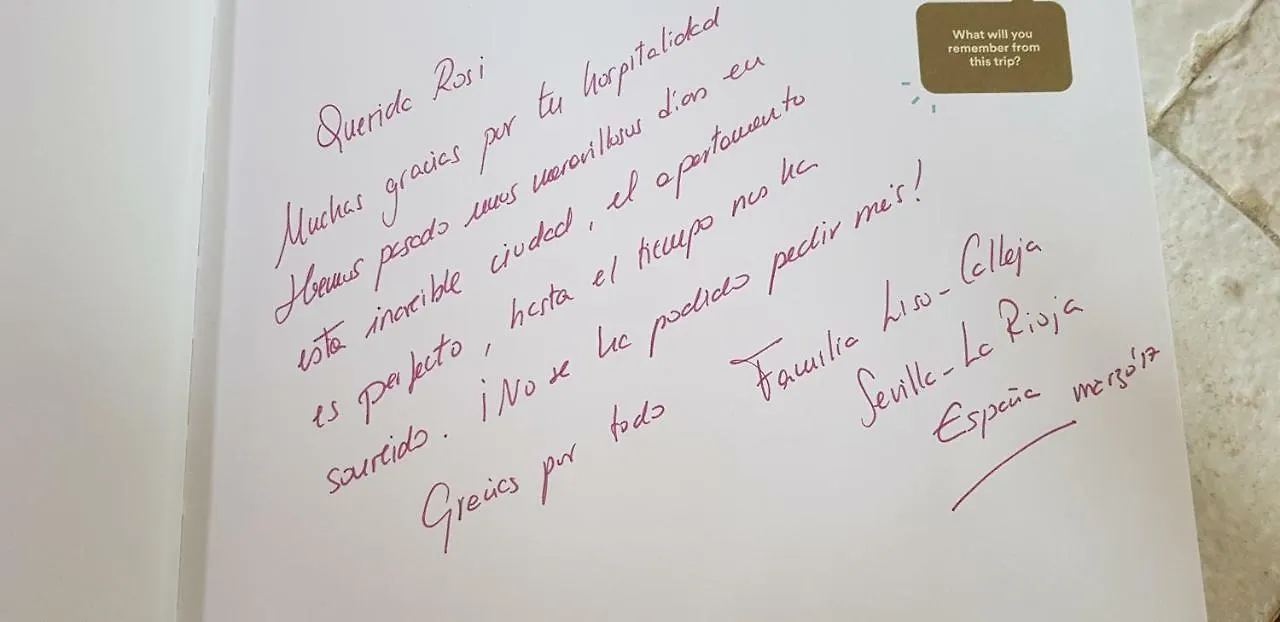 Querida Rosi
Muchas gracias por tu hospitalidad
Hemos pasado unos maravillosos días en
esta increíble ciudad, el apartamento
es perfecto, hasta el tiempo nos ha
sonreído. ¡No se ha podido pedir más!
Gracias por todo
Familia Liso-Calleja
Sevilla-La Rioja
España marzo'17
What will you
remember from
this trip?